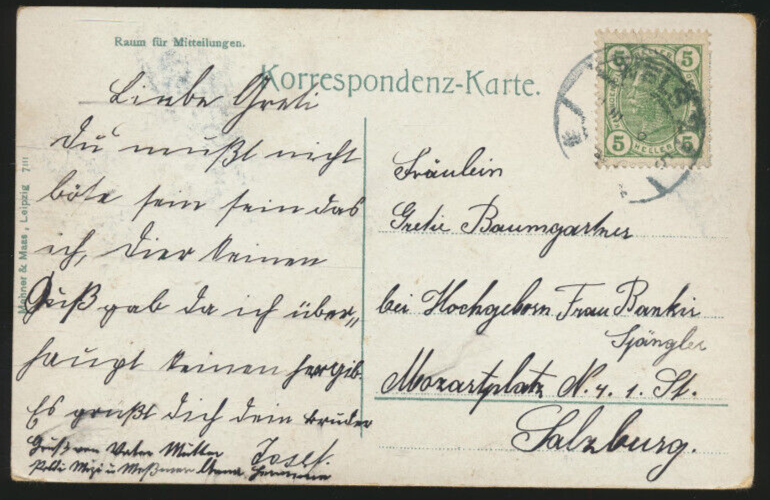 Raum für Mitteilungen.
Korrespondenz-Karte.
Liebe Greti
du mußt nicht
böse sein sein das
ich, dier keinen
Gruß gab da ich über„
haupt keinen hergib.
Es grüßt dich dein bruder
Josef.
Gruß von Vater Mutter
Mizi u
Fräulein
Gretie Baumgartner
bei Hochgeborn Frau Bankir
Spängler
Mozartplatz N. 4. 1. St.
Salzburg.
5 5
WELS
5 HELLER 5
Mehner & Maas, Leipzig